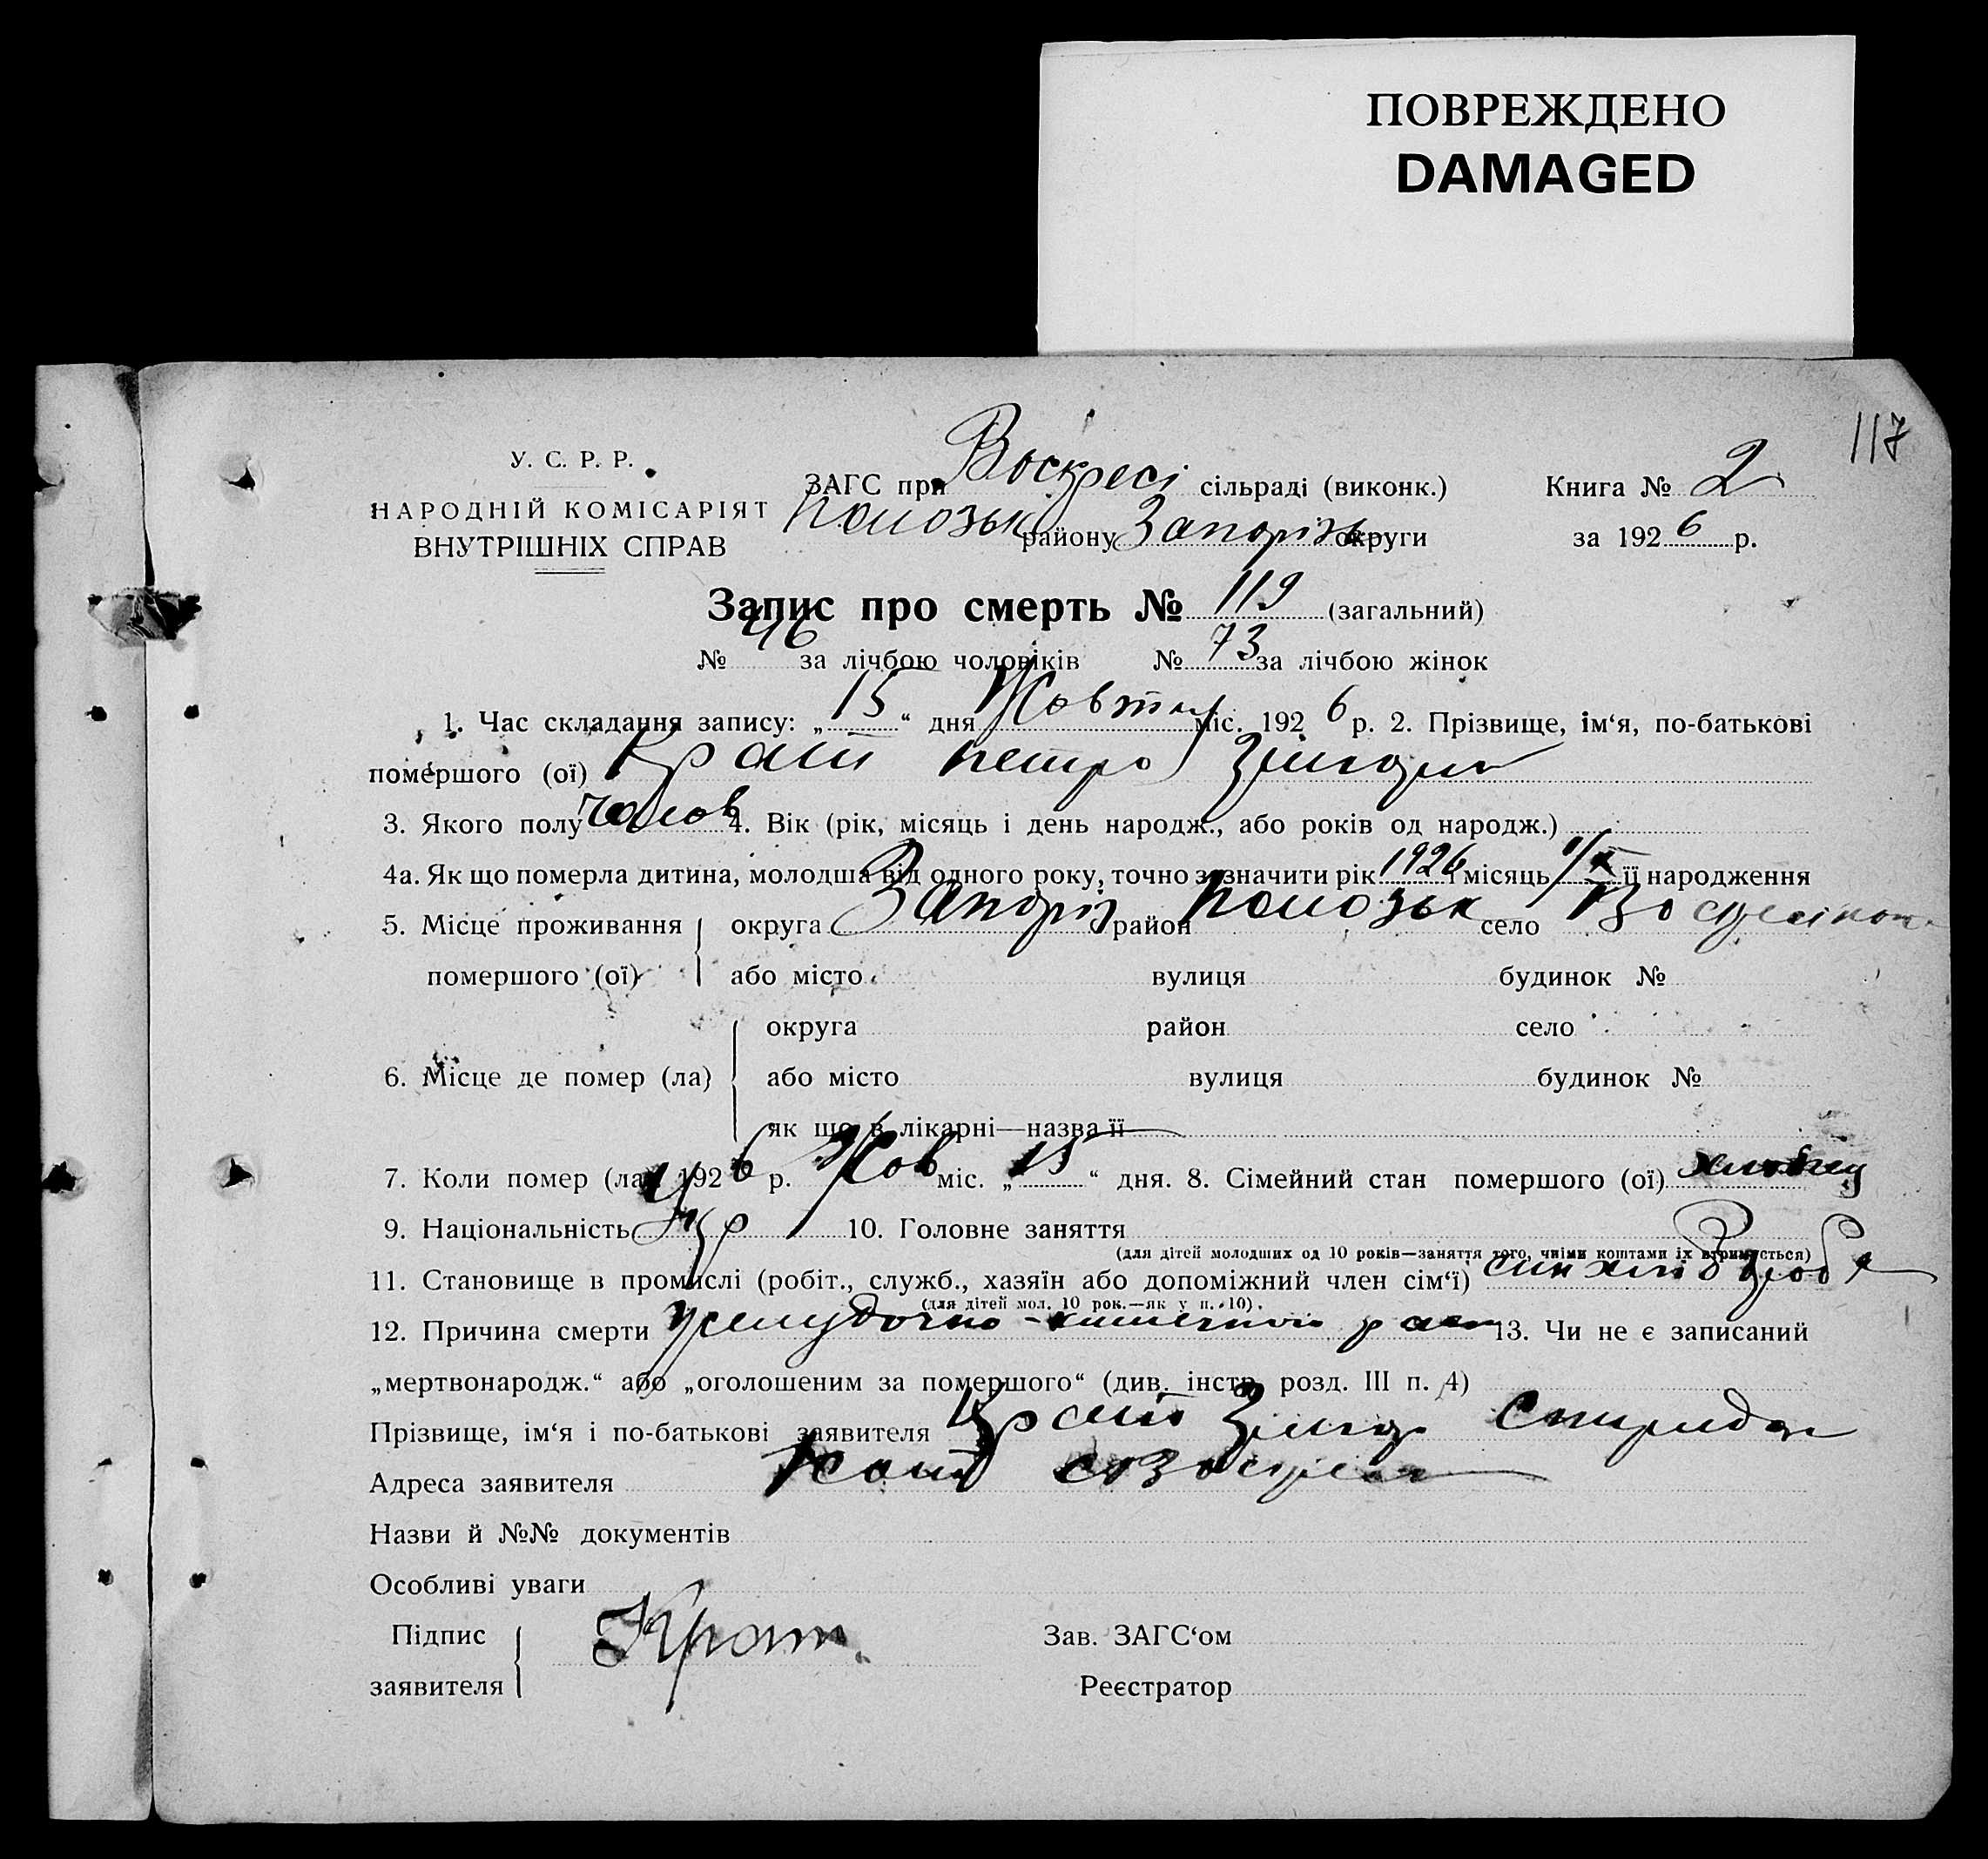 ПОВРЕЖДЕНО
DAMAGED
117
У. С. Р. Р.
НАРОДНІЙ КОМІСАРІЯТ
ВНУТРІШНІХ СПРАВ
ЗАГС при Воскресі сільраді (виконк.)
Книга № 2
району Запорізь округи
за 1926 р.
Запис про смерть № 119 (загальний)
№ 46 за лічбою чоловіків № 73 за лічбою жінок
1. Час складання запису: „15“ дня Жовтня міс. 1926 р. 2. Прізвище, ім‘я, по-батькові
помершого (ої) Крат Петро
3. Якого полу чолов 4. Вік (рік, місяць і день народж., або років од народж.)
4а. Як що померла дитина, молодша від одного року, точно зазначити рік 1926 і місяць її народження
5. Місце проживання округа Запоріз район село
помершого (ої) або місто вулиця будинок №
округа район село
6. Місце де помер (ла) або місто вулиця будинок №
як що в лікарні—назва її
7. Коли помер (ла) 1926 р. Жов міс. „15“ дня. 8. Сімейний стан помершого (ої)
9. Національність Укр 10. Головне заняття
(для дітей молодших од 10 років—заняття того, чиїми коштами їх втримується)
11. Становище в промислі (робіт., служб., хазяїн або допоміжний член сім‘ї) син
(для дітей мол. 10 рок.—як у п. 10).
12. Причина смерти желудочно-кишечной 13. Чи не є записаний
„мертвонародж.“ або „оголошеним за помершого“ (див. інстр. розд. III п. 4)
Прізвище, ім‘я і по-батькові заявителя Крат Спиридон
Адреса заявителя
Назви й №№ документів
Особливі уваги
Підпис
заявителя
Крат
Зав. ЗАГС‘ом
Реєстратор